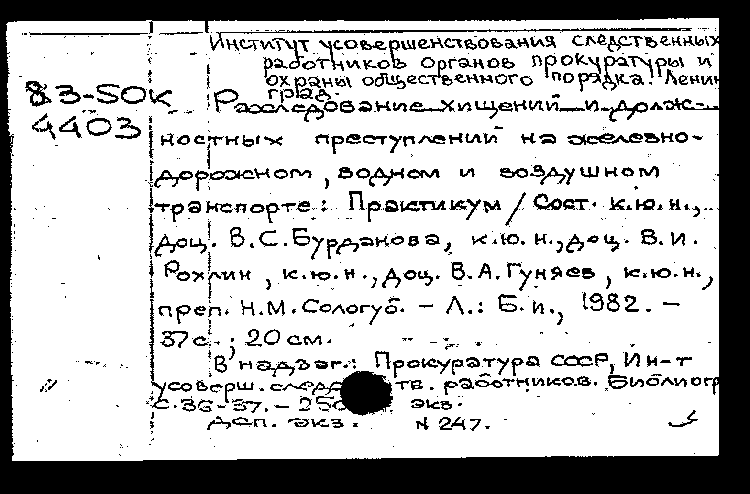 Институт усовершенствования следственных
работников органов прокуратуры и
охраны общественного порядка. Ленин
град.
83-SOK
4403
Расследование хищений и долж-
ностных преступлений на железно-
дорожном, водном и воздушном
транспорте: Практикум / Сост. к.ю.н.,
доц. В.С.Бурданова, к.ю.н., доц. В.И.
Рохлин, к.ю.н., доц. В.А.Гуняев, к.ю.н.,
преп. Н.М.Сологуб. - Л.: Б.и., 1982. -
37с.; 20см.
В надзаг.: Прокуратура СССР, Ин-т
усоверш. след тв. работников. Библиогр
с.36-37. - 250 экз.
Деп. экз. N 247.